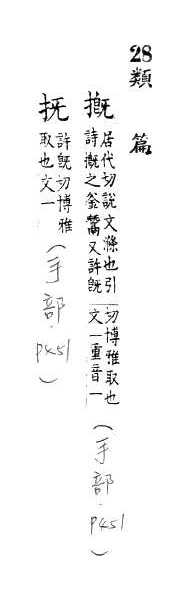 28類篇
摡 居代切說文滌也引
詩摡之釜鬵又許旣
切博雅取也
文一重音一
(手部.P451)
抚 許旣切博雅
取也文一
(手部.P451)